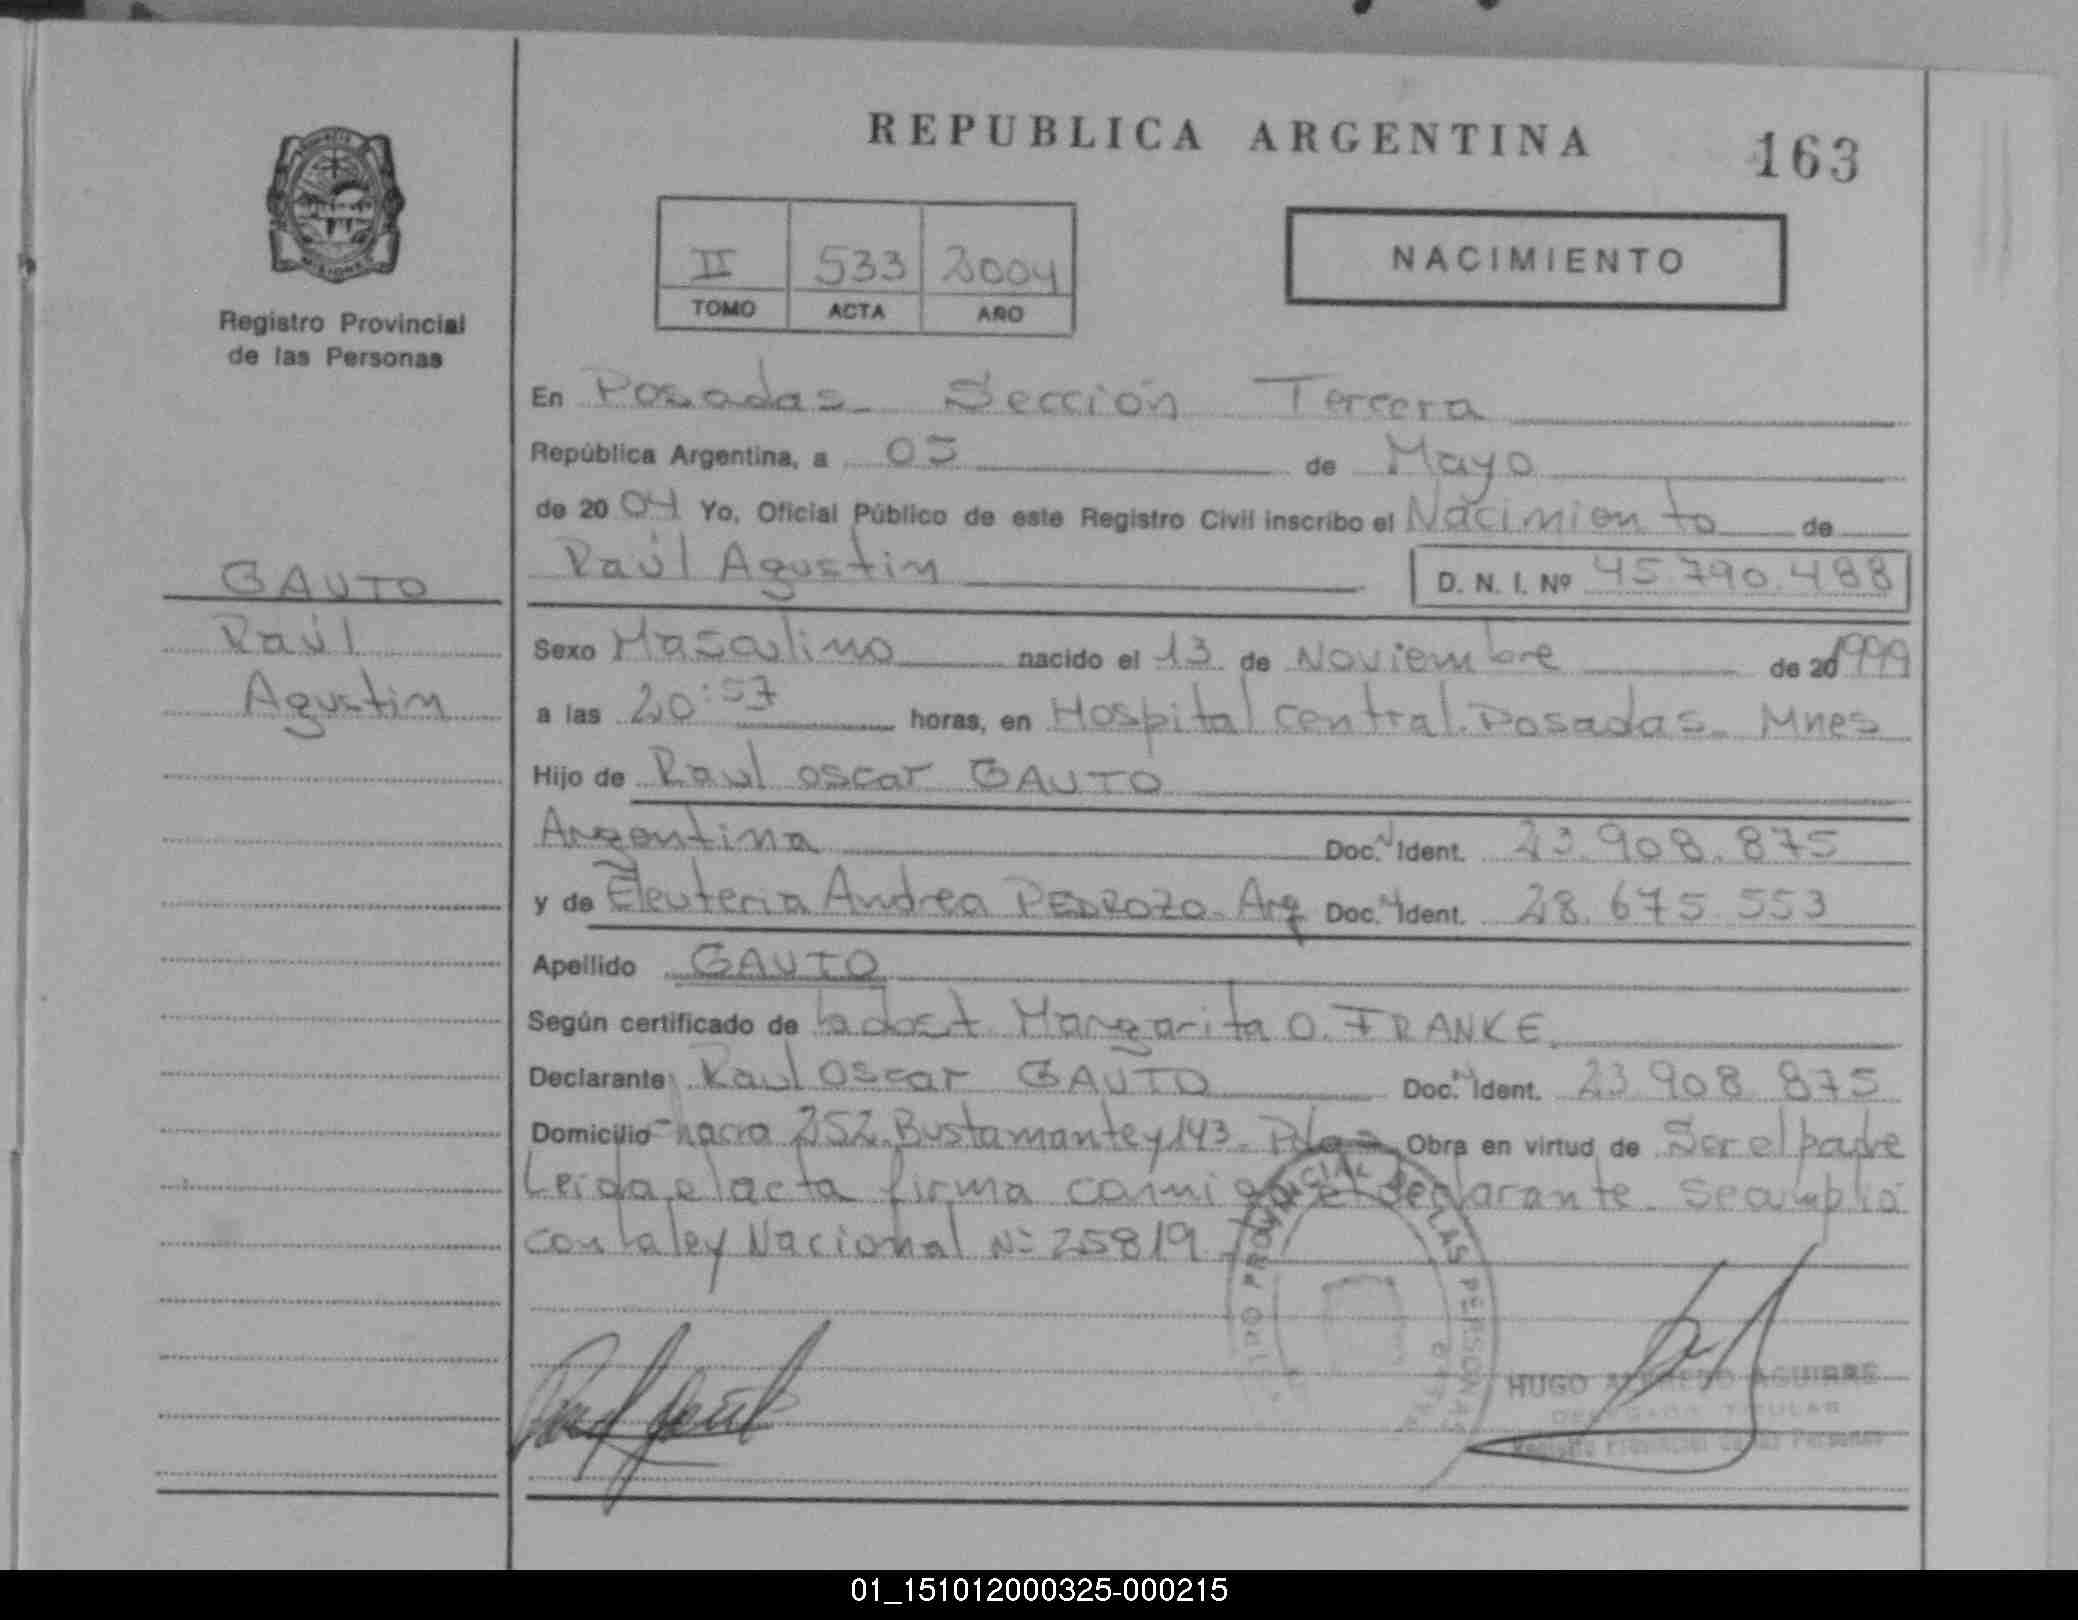 REPUBLICA ARGENTINA
163
PROVINCIA
MISIONES
Registro Provincial
de las Personas
II 533 2004
TOMO ACTA AÑO
NACIMIENTO
En Posadas - Sección Tercera
República Argentina, a 05 de Mayo
de 2004 Yo, Oficial Público de este Registro Civil inscribo el Nacimiento de
Raúl Agustin D. N. I. Nº 45.790.488
GAUTO
Raúl
Agustin
Sexo Masculino nacido el 13 de Noviembre de 20 1999
a las 20:57 horas, en Hospital central. Posadas - Mnes
Hijo de Raul oscar GAUTO
Argentina Doc. Ident. 23.908.875
y de Eleuteria Andrea PEDROZO - Arg Doc. Ident. 28.675.553
Apellido GAUTO
Según certificado de la doct. Margarita O. FRANKE
Declarante Raul Oscar GAUTO Doc. Ident. 23.908.875
Domicilio chacra 252 Bustamante y 143 - Pdas Obra en virtud de Ser el padre
Leida el acta firma conmigo el declarante - Se cumplió
con la ley Nacional Nº 25819
PROVINCIAL LAS PERSONAS
HUGO ALFREDO AGUIRRE
DELEGADO TITULAR
Registro Provincial de las Personas
01_151012000325-000215